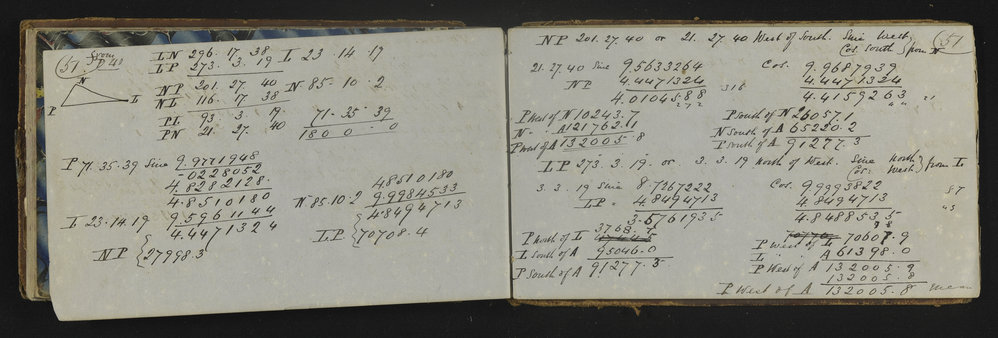 51 from P 40
LN 296 . 17 . 38 L 23 . 14 . 19
LP 273 . 3 . 19
NP 201 . 27 . 40 N 85 - 10 . 2
NL 116 . 17 . 38
PL 93 . 3 . 19. 71 - 35 - 39
PN 21 . 27 . 40 180 0 - 0
N
P L
P 71. 35. 39 Sine 9.9771948
-0228052
4.8282128.
4.8510180
L 23.14.19 9.5961144
4.4471324
NP { 27998.3
4.8510180
N 85.10.2 9.9984533
4.8494713
LP { 70708.4
NP 201. 27. 40 or 21. 27. 40 West of South. Sine West
Cos. South } from N
51
21. 27. 40 Sine 9.5633264
NP 4.4471324
4.0104588
P West of N 10243.7
N " A 121762.1
P West of A 132005.8
Cos. 9.9687939
4.4471324
4.4159263
P South of N 26057.1
N South of A 65220.2
P South of A 91277.3
LP 273. 3. 19. or 3. 3. 19 North of West. Sine North
Cos. West } from L
3. 3. 19 Sine 8.7267222
LP 4.8494713
3.5761935
P North of L 3768.7
L South of A 95046.0
P South of A 91277.3
Cos. 9.9993822
4.8494713
4.8488535
P West of L 70607.9
L " A 61398.0
P West of A 132005.9
132005.8
P West of A 132005.8 mean